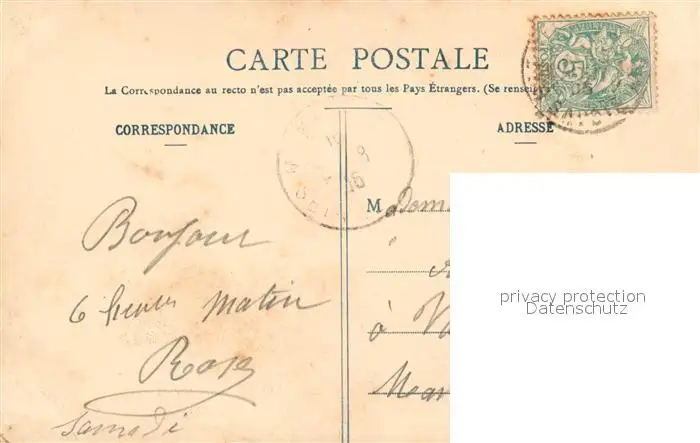 CARTE POSTALE
La Correspondance au recto n'est pas acceptée par tous les Pays Étrangers. (Se renseig
CORRESPONDANCE
ADRESSE
Bonjour
6 heures matin
Rose
Samedi
Madem
à V
Mar
privacy protection
Datenschutz